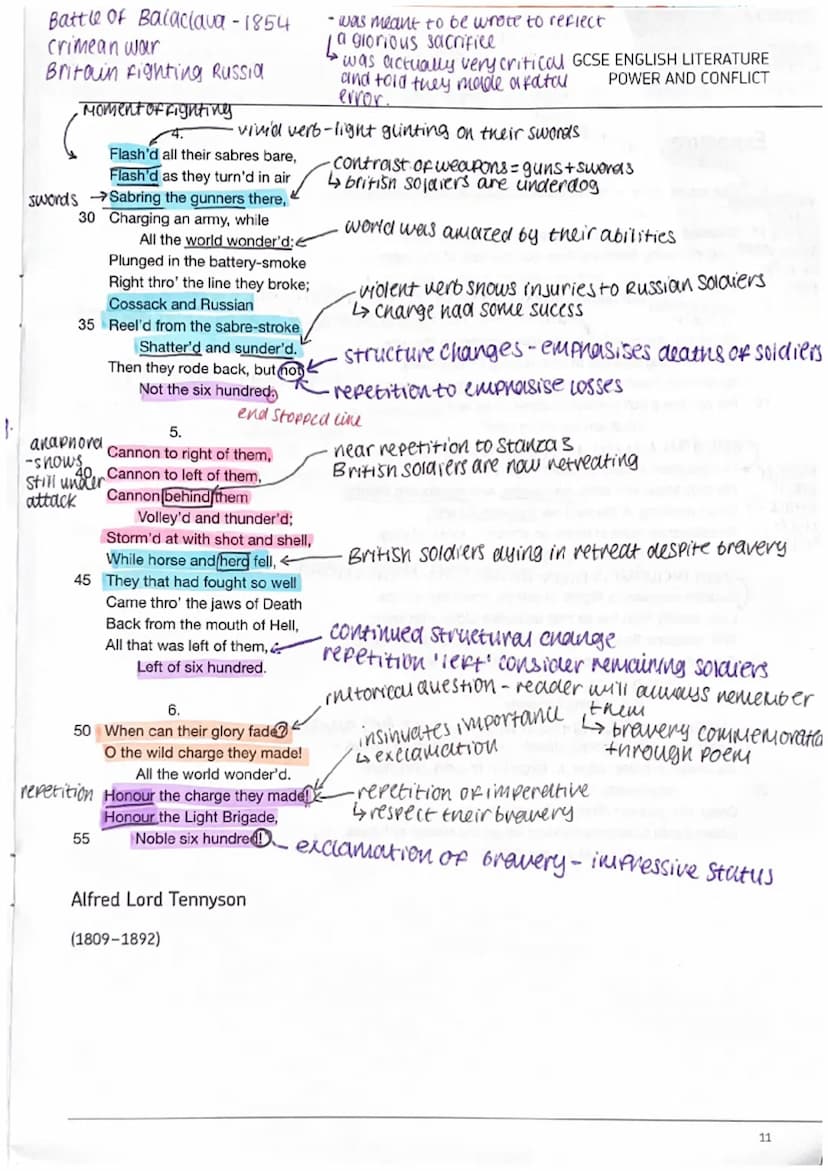 Battle of Balaclava - 1854
Crimean war
Britain fighting Russia
- was meant to be wrote to reflect
a glorious sacrifice
was actually very critical
and told they made a fatal
error.
GCSE ENGLISH LITERATURE
POWER AND CONFLICT
Moment of fighting
4.
vivid verb - light glinting on their swords
Flash'd all their sabres bare,
Flash'd as they turn'd in air
contrast of weapons = guns + swords
↳ british soldiers are underdog
swords → Sabring the gunners there,
30 Charging an army, while
All the world wonder'd:
world was amazed by their abilities
Plunged in the battery-smoke
Right thro' the line they broke;
Cossack and Russian
violent verb shows injuries to Russian Soldiers
↳ charge had some sucess
35 Reel'd from the sabre-stroke
Shatter'd and sunder'd.
structure changes - emphasises deaths of soldiers
Then they rode back, but not
Not the six hundred.
repetition to emphasise losses
end stopped line
5.
anaphora
- shows
still under
attack
Cannon to right of them,
near repetition to Stanza 3
British soldiers are now retreating
40 Cannon to left of them,
Cannon behind them
Volley'd and thunder'd;
Storm'd at with shot and shell,
While horse and hero fell,
British soldiers dying in retreat despite bravery
45 They that had fought so well
Came thro' the jaws of Death
Back from the mouth of Hell,
All that was left of them,
continued structural change
repetition 'left' consider remaining soldiers
Left of six hundred.
6.
rhetorical question - reader will always remember
them
↳ bravery commemorated
through poem
50 When can their glory fade?
insinuates importance
↳ exclamation
O the wild charge they made!
All the world wonder'd.
repetition Honour the charge they made!
repetition of imperative
↳ respect their bravery
Honour the Light Brigade,
55 Noble six hundred!
exclamation of bravery - impressive status
Alfred Lord Tennyson
(1809–1892)
11